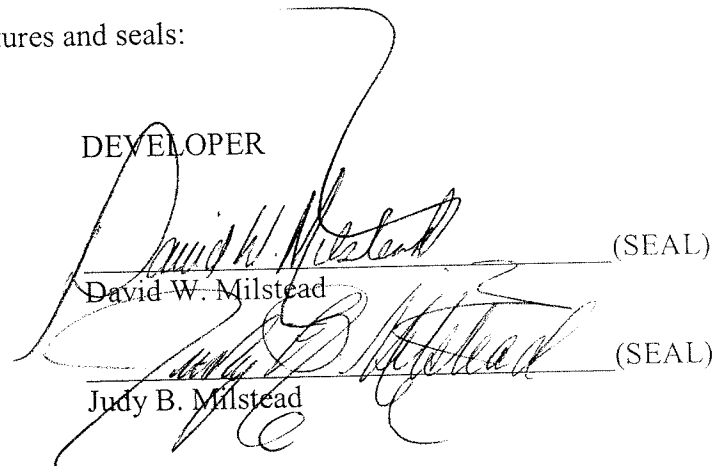 tures and seals:
DEVELOPER
David W. Milstead (SEAL)
David W. Milstead
Judy B. Milstead (SEAL)
Judy B. Milstead